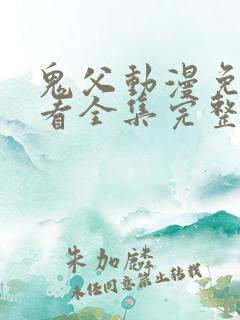 鬼父動漫免
看全集完整
朱加麟
未经同意禁止转载